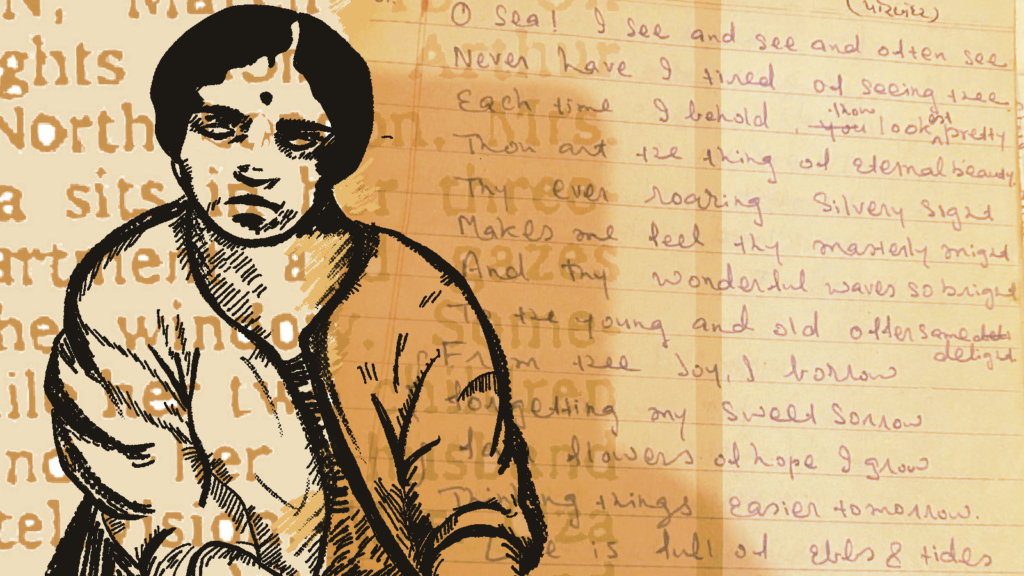 N, March
ghts Arthur
North on. Mrs.
a sits in her three
artmen a gazes
he window. Some
ile her tw children
n her husband
tel vision. za
O Sea! I see and see and often see
Never have I tired of seeing thee
Each time I behold, thou look pretty
Thou art the thing of eternal beauty
Thy ever roaring silvery sight
Makes me feel thy masterly might
And thy wonderful waves so bright
the young and old offer same delight
From thee joy, I borrow
Forgetting my sweet sorrow
flowers of hope I grow
Thinking things easier tomorrow.
is full of ebbs & tides